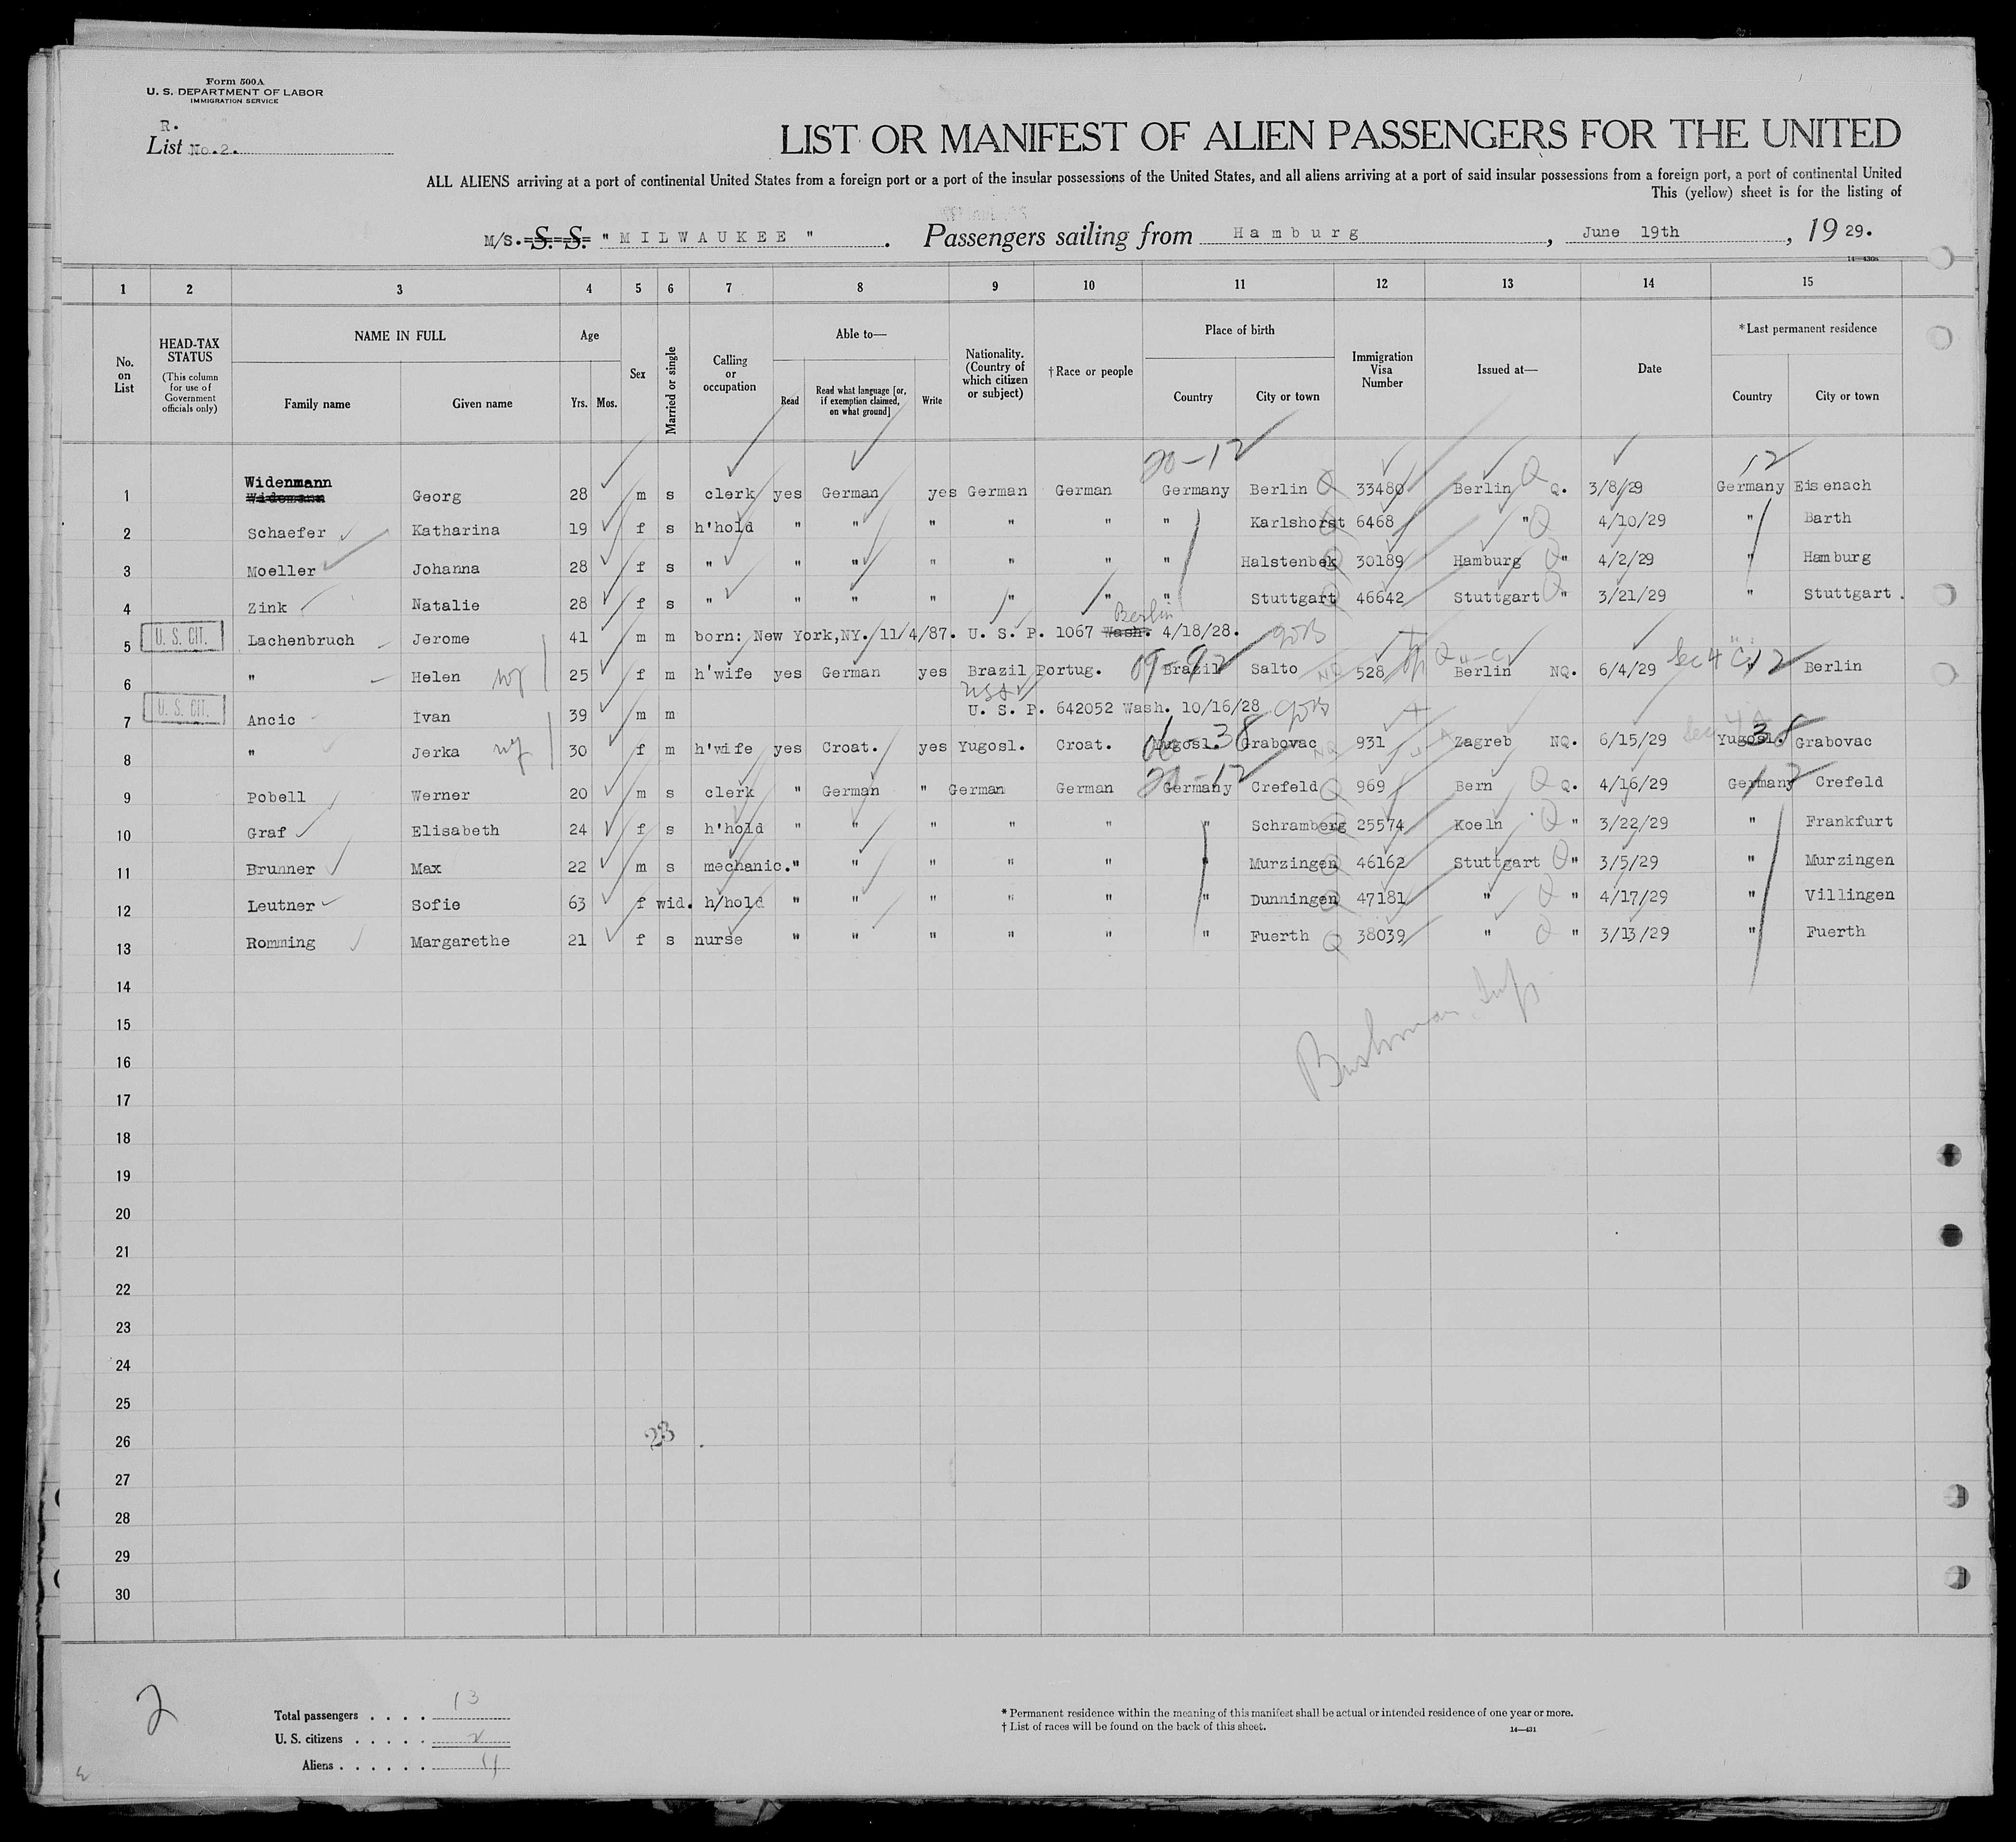 Form 500A
U. S. DEPARTMENT OF LABOR
IMMIGRATION SERVICE
R.
List No.2.
LIST OR MANIFEST OF ALIEN PASSENGERS FOR THE UNITED
ALL ALIENS arriving at a port of continental United States from a foreign port or a port of the insular possessions of the United States, and all aliens arriving at a port of said insular possessions from a foreign port, a port of continental United
This (yellow) sheet is for the listing of
M/S. S. S. "MILWAUKEE". Passengers sailing from Hamburg, June 19th, 1929.
14—430a
1 2 3 4 5 6 7 8 9 10 11 12 13 14 15
No. on List
HEAD-TAX STATUS
(This column for use of Government officials only)
NAME IN FULL
Family name Given name
Age
Yrs. Mos.
Sex
Married or single
Calling or occupation
Able to—
Read
Read what language [or, if exemption claimed, on what ground]
Write
Nationality. (Country of which citizen or subject)
†Race or people
Place of birth
Country City or town
Immigration Visa Number
Issued at—
Date
*Last permanent residence
Country City or town
20-12 12
1 Widenmann Georg 28 m s clerk yes German yes German German Germany Berlin Q 33480 Berlin Q Q. 3/8/29 Germany Eisenach
2 Schaefer Katharina 19 f s h'hold " " " " " " Karlshorst 6468 " Q 4/10/29 " Barth
3 Moeller Johanna 28 f s " " " " " " " Halstenbek Q 30189 Hamburg Q " 4/2/29 " Hamburg
4 Zink Natalie 28 f s " " " " " " " Stuttgart Q 46642 Stuttgart Q " 3/21/29 " Stuttgart.
Berlin
5 U. S. CIT. Lachenbruch Jerome 41 m m born: New York,NY. 11/4/87. U. S. P. 1067 Wash. 4/18/28.
6 " Helen 25 f m h'wife yes German yes Brazil Portug. 09-92 Brazil Salto NQ 528 Berlin NQ. 6/4/29 Sec 4 c 12 " Berlin
USA
7 U. S. CIT. Ancic Ivan 39 m m U. S. P. 642052 Wash. 10/16/28
8 " Jerka ny 30 f m h'wife yes Croat. yes Yugosl. Croat. 06-38 Yugosl. Grabovac NQ 931 Zagreb NQ. 6/15/29 38 Yugosl. Grabovac
20-12 12
9 Pobell Werner 20 m s clerk " German " German German Germany Crefeld Q 969 Bern Q Q. 4/16/29 Germany Crefeld
10 Graf Elisabeth 24 f s h'hold " " " " " " Schramberg 25574 Koeln Q " 3/22/29 " Frankfurt
11 Brunner Max 22 m s mechanic. " " " " " " Murzingen Q 46162 Stuttgart Q " 3/5/29 " Murzingen
12 Leutner Sofie 63 f wid. h/hold " " " " " " Dunningen Q 47181 " Q " 4/17/29 " Villingen
13 Romming Margarethe 21 f s nurse " " " " " " Fuerth Q 38039 " Q " 3/13/29 " Fuerth
14
15
16
17
18
19
20
21
22
23
24
25
26 23
27
28
29
30
2
Total passengers . . . . 13
U. S. citizens . . . . . 2
Aliens . . . . . . 11
* Permanent residence within the meaning of this manifest shall be actual or intended residence of one year or more.
† List of races will be found on the back of this sheet.
14—431